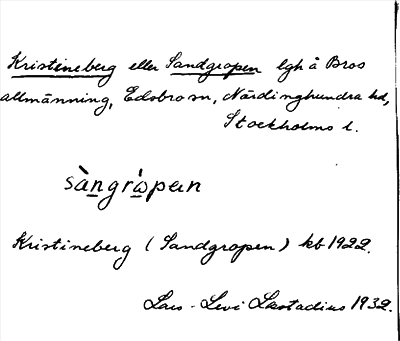 Kristineberg eller Sandgropen lgh å Bros
allmänning, Edsbro sn, Närdinghundra hd,
Stockholms l.
sàngrópen
Kristineberg (Sandgropen) kb 1922.
Lars-Levi Læstadius 1932.